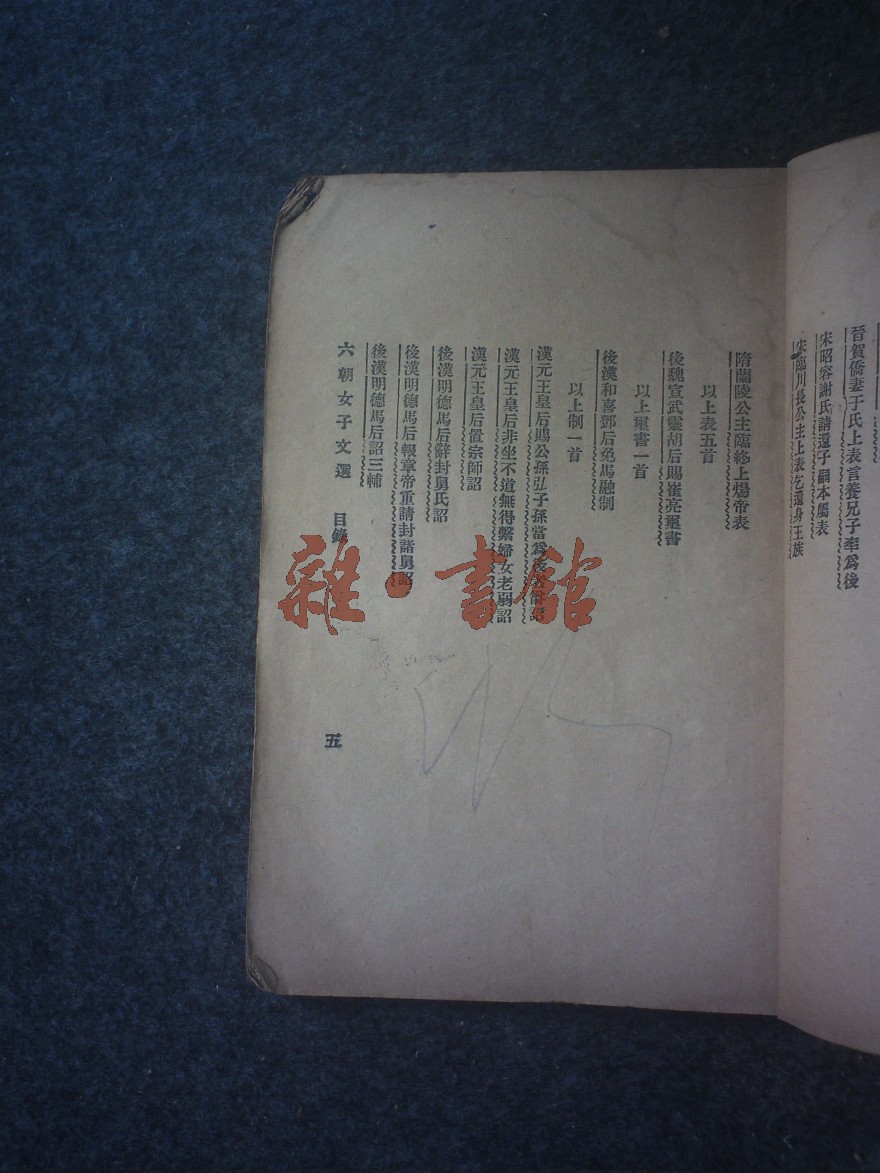 晉賀僑妻于氏上表言養兄子率爲後
宋昭容謝氏請還子嗣本屬表
宋臨川長公主上表乞還身王族
隋蘭陵公主臨終上煬帝表
以上表五首
後魏宣武靈胡后賜崔亮璽書
以上璽書一首
後漢和喜鄧后免馬融制
以上制一首
漢元王皇后賜公孫弘子孫當爲後者爵詔
漢元王皇后非坐不道無得繫婦女老弱詔
漢元王皇后置宗師詔
後漢明德馬后辭封舅氏詔
後漢明德馬后報章帝重請封諸舅詔
後漢明德馬后詔三輔
六朝女子文選 目錄 五
雜·書館